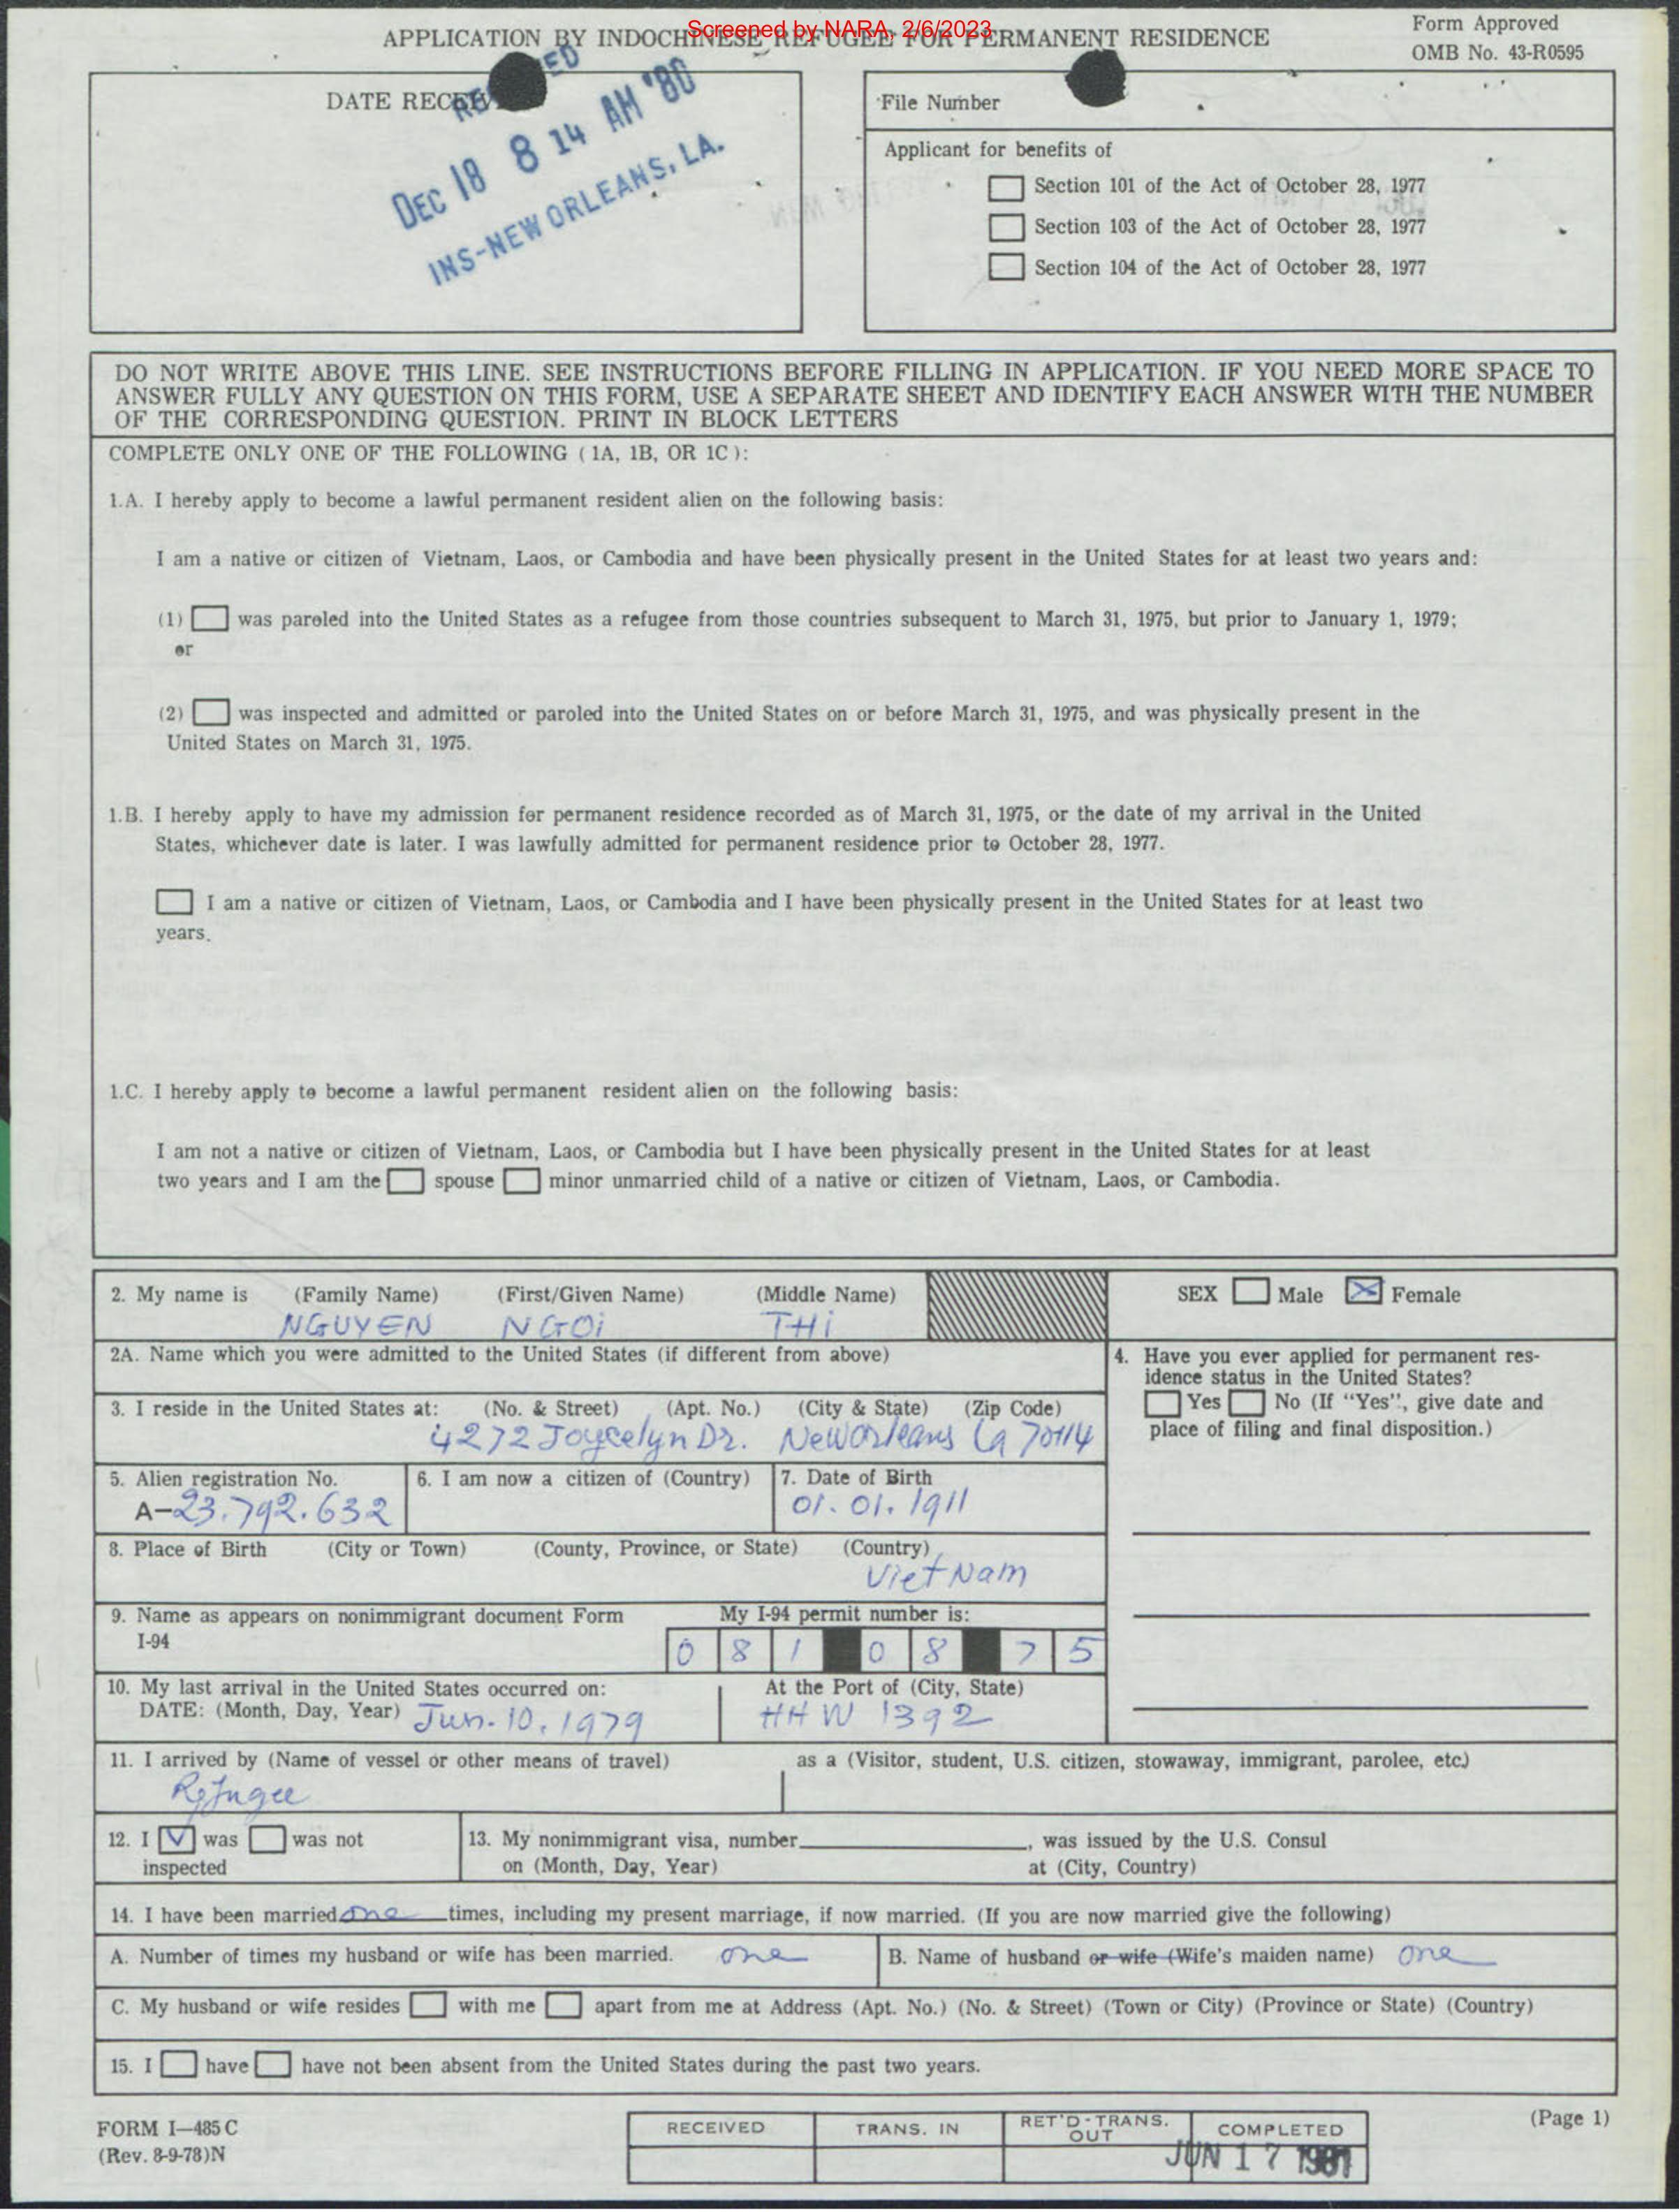 Screened by NARA, 2/6/2023
APPLICATION BY INDOCHINESE REFUGEE FOR PERMANENT RESIDENCE
Form Approved
OMB No. 43-R0595
DATE RECEIV
DEC 18 8 14 AM '80
INS-NEW ORLEANS, LA.
File Number
Applicant for benefits of
Section 101 of the Act of October 28, 1977
Section 103 of the Act of October 28, 1977
Section 104 of the Act of October 28, 1977
DO NOT WRITE ABOVE THIS LINE. SEE INSTRUCTIONS BEFORE FILLING IN APPLICATION. IF YOU NEED MORE SPACE TO
ANSWER FULLY ANY QUESTION ON THIS FORM, USE A SEPARATE SHEET AND IDENTIFY EACH ANSWER WITH THE NUMBER
OF THE CORRESPONDING QUESTION. PRINT IN BLOCK LETTERS
COMPLETE ONLY ONE OF THE FOLLOWING (1A, 1B, OR 1C):
1.A. I hereby apply to become a lawful permanent resident alien on the following basis:
I am a native or citizen of Vietnam, Laos, or Cambodia and have been physically present in the United States for at least two years and:
(1) was paroled into the United States as a refugee from those countries subsequent to March 31, 1975, but prior to January 1, 1979;
or
(2) was inspected and admitted or paroled into the United States on or before March 31, 1975, and was physically present in the
United States on March 31, 1975.
1.B. I hereby apply to have my admission for permanent residence recorded as of March 31, 1975, or the date of my arrival in the United
States, whichever date is later. I was lawfully admitted for permanent residence prior to October 28, 1977.
I am a native or citizen of Vietnam, Laos, or Cambodia and I have been physically present in the United States for at least two
years.
1.C. I hereby apply to become a lawful permanent resident alien on the following basis:
I am not a native or citizen of Vietnam, Laos, or Cambodia but I have been physically present in the United States for at least
two years and I am the spouse minor unmarried child of a native or citizen of Vietnam, Laos, or Cambodia.
2. My name is (Family Name) (First/Given Name) (Middle Name)
NGUYEN NGOi THi
SEX Male Female
2A. Name which you were admitted to the United States (if different from above)
3. I reside in the United States at: (No. & Street) (Apt. No.) (City & State) (Zip Code)
4272 Joycelyn Dr. New Orleans La 70114
4. Have you ever applied for permanent res-
idence status in the United States?
Yes No (If "Yes", give date and
place of filing and final disposition.)
5. Alien registration No.
A-23.792.632
6. I am now a citizen of (Country)
7. Date of Birth
01.01.1911
8. Place of Birth (City or Town) (County, Province, or State) (Country)
Viet Nam
9. Name as appears on nonimmigrant document Form
I-94
My I-94 permit number is:
0 8 1 0 8 7 5
10. My last arrival in the United States occurred on:
DATE: (Month, Day, Year) Jun. 10. 1979
At the Port of (City, State)
HHW 1392
11. I arrived by (Name of vessel or other means of travel) as a (Visitor, student, U.S. citizen, stowaway, immigrant, parolee, etc.)
Refugee
12. I V was was not
inspected
13. My nonimmigrant visa, number , was issued by the U.S. Consul
on (Month, Day, Year) at (City, Country)
14. I have been married one times, including my present marriage, if now married. (If you are now married give the following)
A. Number of times my husband or wife has been married. one
B. Name of husband or wife (Wife's maiden name) one
C. My husband or wife resides with me apart from me at Address (Apt. No.) (No. & Street) (Town or City) (Province or State) (Country)
15. I have have not been absent from the United States during the past two years.
FORM I-485 C
(Rev. 8-9-78)N
RECEIVED TRANS. IN RET'D-TRANS. OUT COMPLETED
JUN 17 1981
(Page 1)